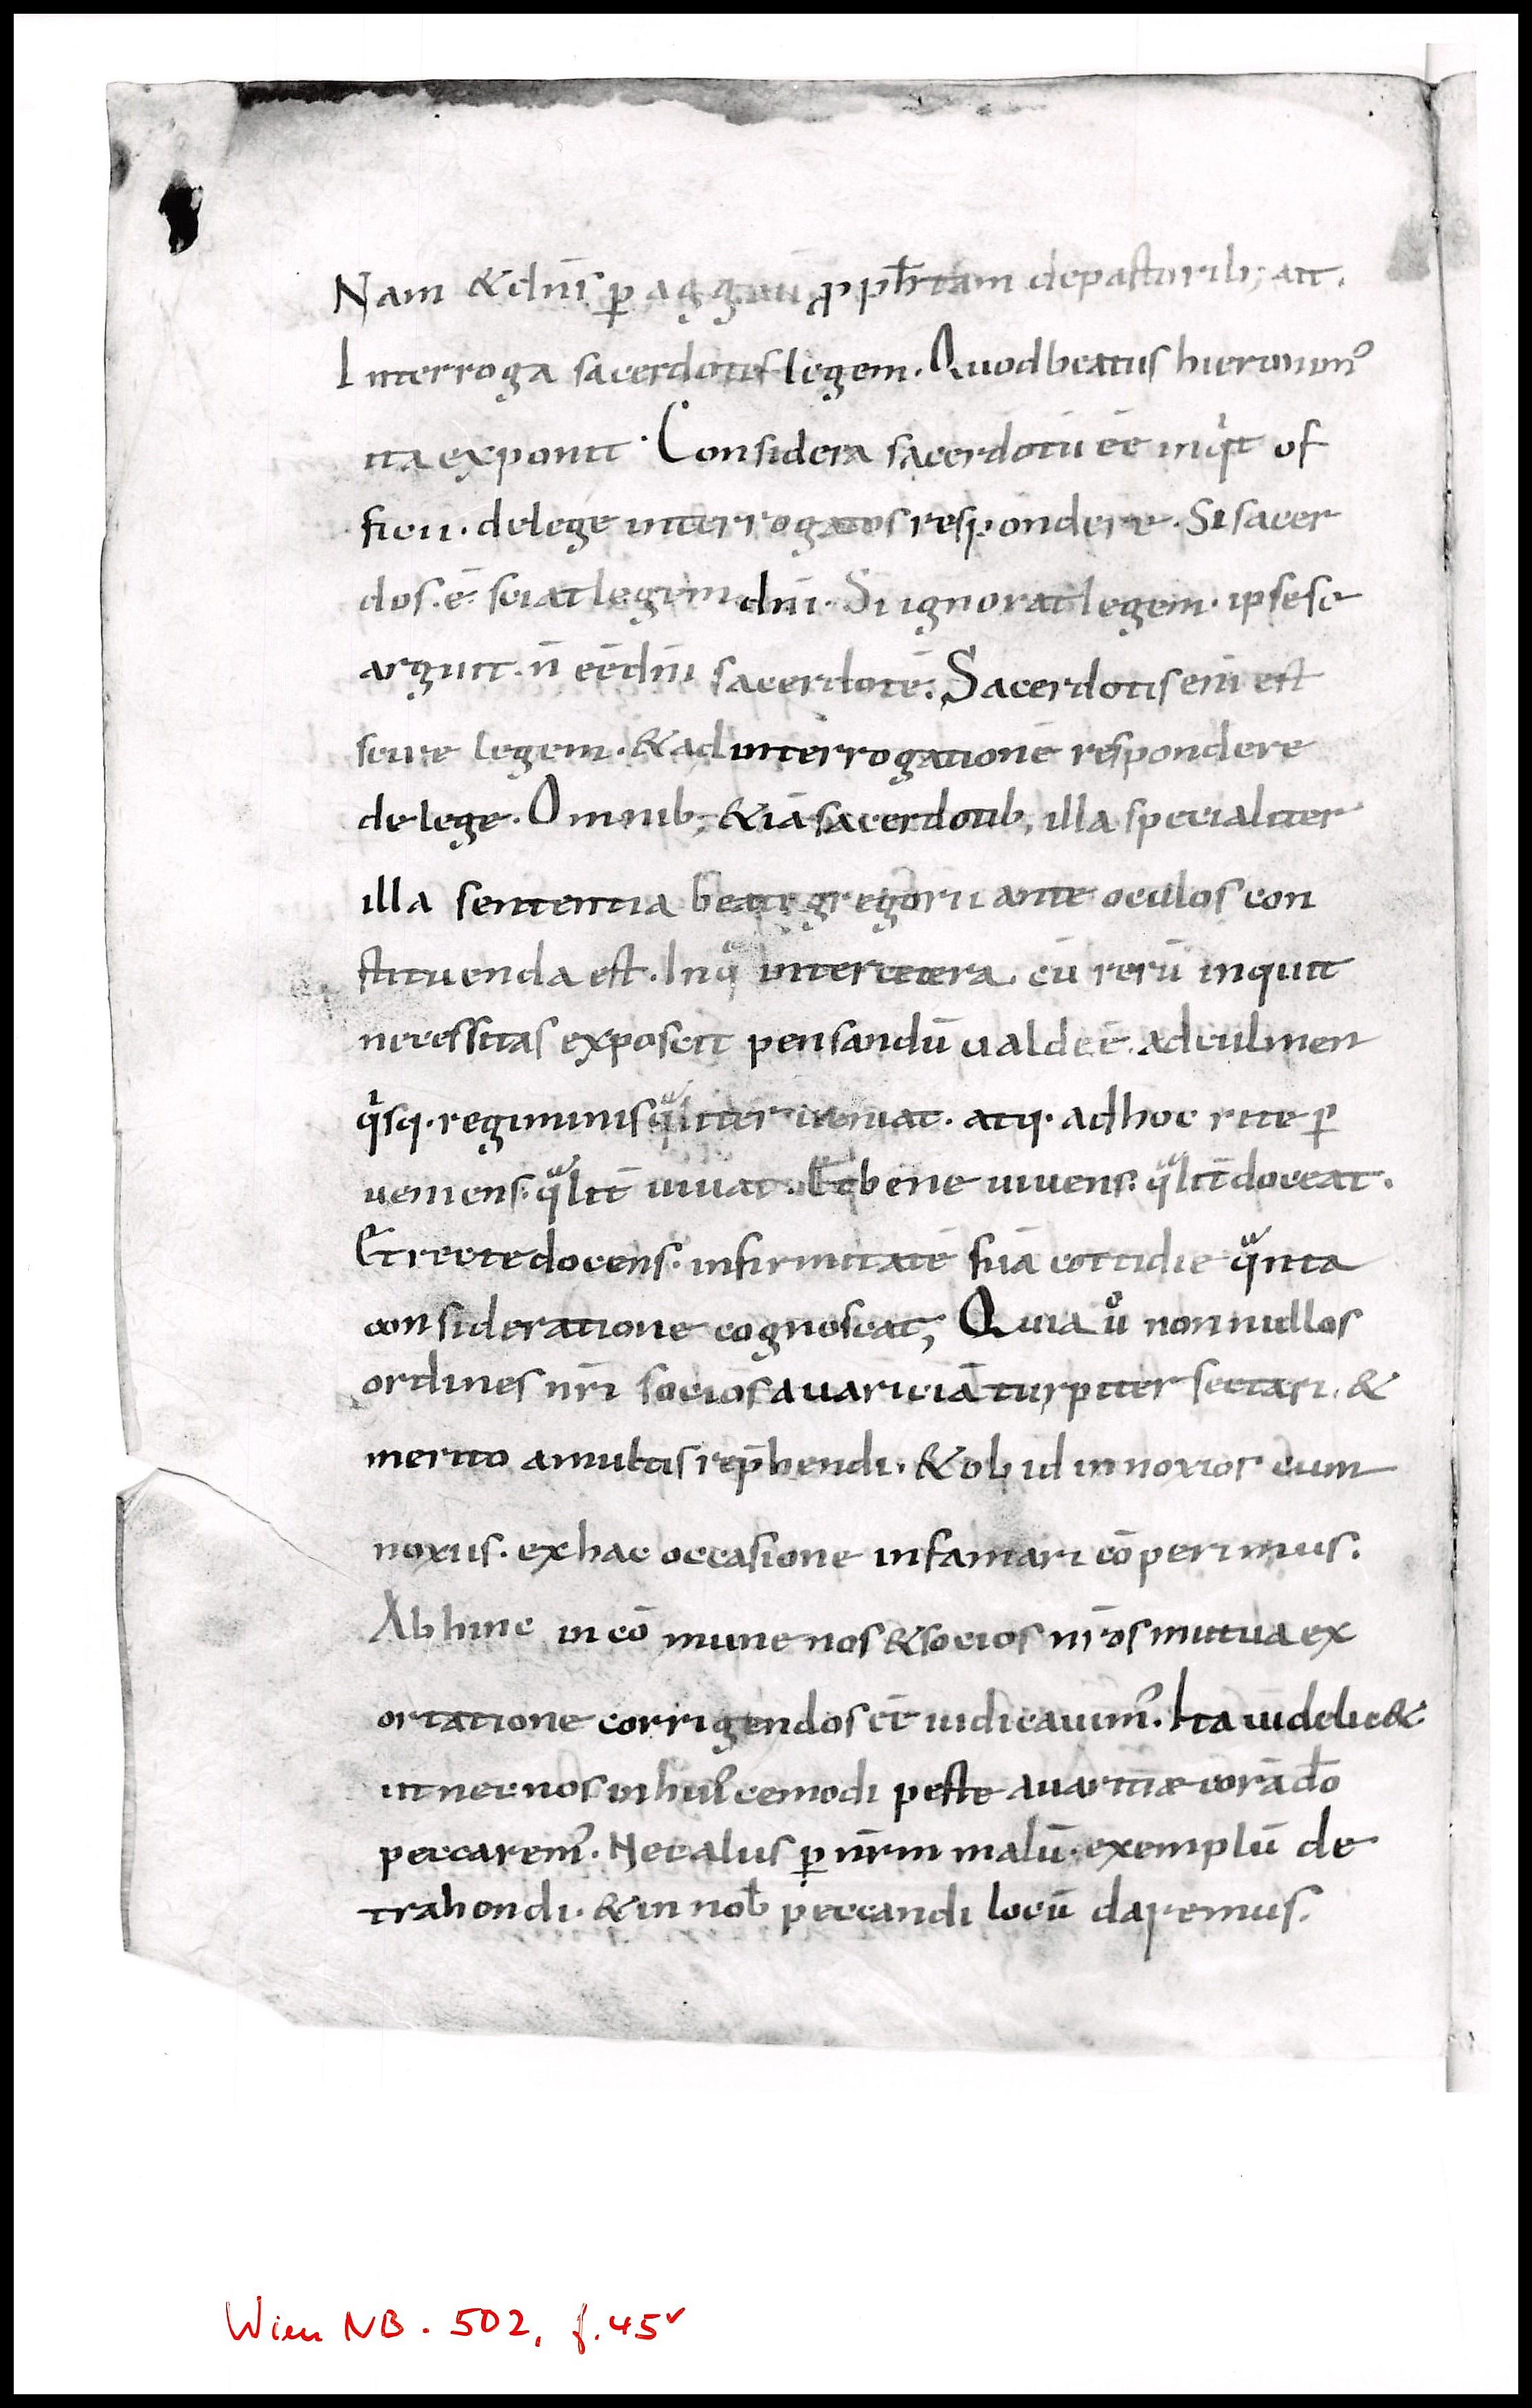 Nam & dn̄s ꝑ aggeū ꝓph̄tam de pastorib; ait.
Interroga sacerdotes legem. Quod beatus hieronim᾽
ita exponit. Considera sacerdotū eē inqͥt of
ficiū. de lege interrogatos respondere. Si sacer
dos. ē. sciat legem dn̄i. Si ignorat legem. ipse se
arguit. n̄ eē dn̄i sacerdotē. Sacerdotis eni est
scire legem. & ad interrogationē respondere
de lege. Omnib; & iā sacerdotib; illa specialiter
illa sententia beati gregorii ante oculos con
stituenda est. In qͣ inter cetera. cū rerū inquit
necessitas exposcit pensandū ualde ē. ad culmen
qͥsq. regiminis qͣliter ueniat. atq. ad hoc rite ꝑ
ueniens. qͣlit̄ uiuat. Et bene uiuens. qͣlit̄ doceat.
Et recte docens. infirmitatē suā cottidie qͣnta
consideratione cognoscat; Quia uͦ nonnullos
ordines nr̄i socios auariciā turpiter sectari. &
merito a multis rep̄hendi. & ob id innoxios cum
noxiis. ex hac occasione infamari cōperimus.
Ab hinc in cō mune nos & socios nr̄os mutua ex
ortatione corrigendos eē iudicauim᾽. Ita uidelic&
ut nec nos in hui᾽cemodi peste auaritiæ corā dō
peccarem᾽. Nec aliis ꝑ nr̄m malū. exemplū de
trahendi. & in nob̄ peccandi locū daremus.
Wien NB. 502, f. 45v